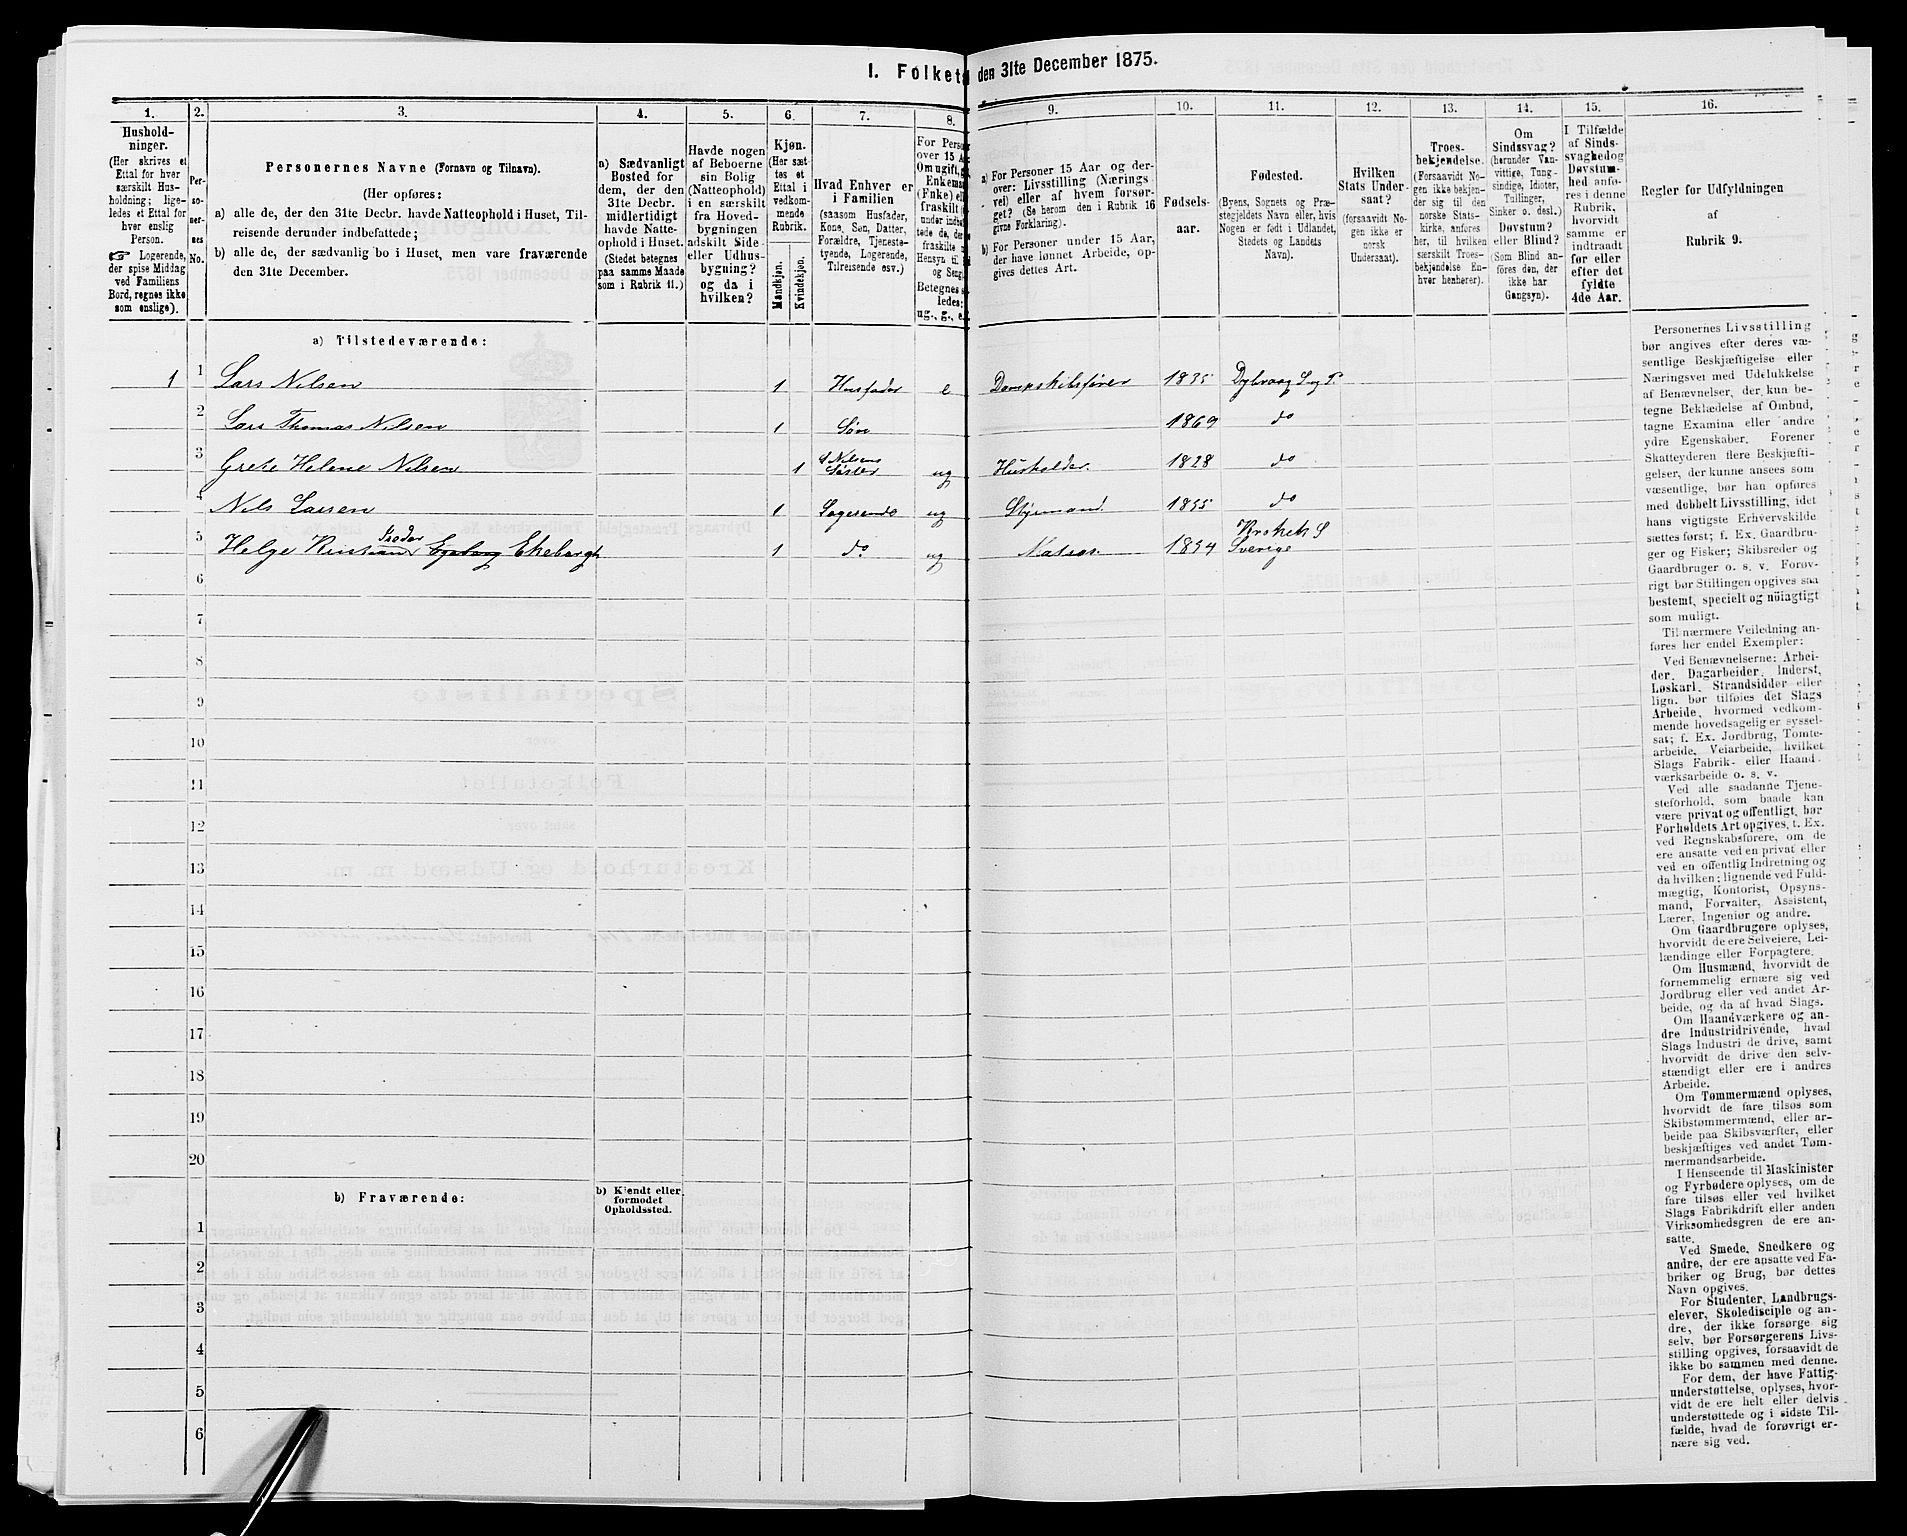 I. Folketa
den 31te December 1875.
1.
2.
3.
4.
5.
6.
7.
8.
9.
10.
11.
12.
13.
14.
15.
16.
Hushold-
ninger.
(Her skrives et
Ettal for hver
særskilt Hus-
holdning; lige-
ledes et Ettal for
hver enslig
Person.
☞ Logerende,
der spise Middag
ved Familiens
Bord, regnes ikke
som enslige).
Per-
so-
ner-
nes
No.
Personernes Navne (Fornavn og Tilnavn).
(Her opføres:
a) alle de, der den 31te Decbr. havde Natteophold i Huset, Til-
reisende derunder indbefattede;
b) alle de, der sædvanlig bo i Huset, men vare fraværende
den 31te December.
a) Sædvanligt
Bosted for
dem, der den
31te Decbr.
midlertidigt
havde Natte-
ophold i Huset.
(Stedet betegnes
paa samme Maade
som i Rubrik 11.)
Havde nogen
af Beboerne
sin Bolig
(Natteophold)
i en særskilt
fra Hoved-
bygningen
adskilt Side-
eller Udhus-
bygning?
og da i
hvilken?
Kjøn.
(Her sæt-
tes et
Ettal i
vedkom-
mende
Rubrik.
Mandkjøn.
Kvindekjøn.
Hvad Enhver er
i Familien
(saasom Husfader,
Kone, Søn, Datter,
Forældre, Tjeneste-
tyende, Logerende,
Tilreisende osv.)
For Person
over 15 Aa
Om ugift, g
Enkema
(Enke) ell
fraskilt (
under indbe
tede de, der
fraskilte
Hensyn til
og Seng
Betegnes s
ledes:
ug., g., e.
a) For Personer 15 Aar og der-
over: Livsstilling (Nærings-
vei) eller af hvem forsør-
get? (Se herom den i Rubrik 16
givne Forklaring).
b) For Personer under 15 Aar,
der have lønnet Arbeide, op-
gives dettes Art.
Fødsels-
aar.
Fødested.
(Byens, Sognets og Præ-
stegjeldets Navn eller, hvis
Nogen er født i Udlandet,
Stedets og Landets
Navn).
Hvilken
Stats Under-
saat?
(forsaavidt No-
gen ikke er
norsk
Undersaat).
Troes-
bekjendelse.
(Forsaavidt No-
gen ikke bekjen-
der sig til den
norske Stats-
kirke, anføres
her, til hvilken
særskilt Troes-
bekjendelse En-
hver henhører).
Om
Sindssvag?
(herunder Van-
vittige, Tung-
sindige, Idioter,
Tillinger,
Sinker o. desl.)
Døvstum?
eller Blind?
(Som Blind an-
føres den, der
ikke har
Gangsyn).
I Tilfælde
af Sinds-
svaghed og
Døvstum-
hed anfø-
res i denne
Rubrik,
hvorvidt
samme er
indtraadt
før eller
efter det
fyldte
4de Aar.
Regler for Udfyldningen
af
Rubrik 9.
a) Tilstedeværende:
1 1 Lars Nilsen 1 Husfader e Dampskibsfører 1835 Dybvaag S og P.
2 Lars Thomas Nilsen 1 Søn 1869 do
3 Grete Helene Nilsen 1 L Nilsens Søster ug Husholder. 1828 do
4 Nils Larsen 1 Logerende ug Styrmand. 1855 do
5 Helge Ekebergh 1 do. ug Matros. 1854 Sverige
6
7
8
9
10
11
12
13
14
15
16
17
18
19
20
b) Fraværende:
b) Kjendt eller
formodet
Opholdssted.
1
2
3
4
5
6
Personernes Livsstilling
bør angives efter deres væ-
sentlige Beskjæftigelse eller
Næringsvei med Udelukkelse
af Benævnelser, der kun be-
tegne Beklædelse af Ombud,
tagne Examina eller andre
ydre Egenskaber. Forener
Skatteyderen flere Beskjæfti-
gelser, der kunne ansees som
væsentlige, bør han opføres
med dobbelt Livsstilling, idet
hans vigtigste Erhvervskilde
sættes først; f. Ex. Gaardbru-
ger og Fisker; Skibsreder og
Gaardbruger o. s. v. Forøv-
rigt bør Stillingen opgives saa
bestemt, specielt og nöiagtigt
som muligt.
Til nærmere Veiledning an-
føres her endel Exempler:
Ved Benævnelserne: Arbei-
der, Dagarbeider, Inderst,
Løskarl, Strandsidder eller
lign. bør tilføies det Slags
Arbeide, hvormed vedkom-
mende hovedsagelig er syssel-
sat; f. Ex. Jordbrug, Tomte-
arbeide, Veiarbeide, hvilket
Slags Fabrik- eller Haand-
værksarbeide o. s. v.
Ved alle saadanne Tjene-
steforhold, som baade kan
være privat og offentligt, bør
Forholdets Art opgives, t. Ex.
ved Regnskabsførere, om de
ere ansatte ved en privat eller
ved en offentlig Indretning og
da hvilken; lignende ved Fuld-
mægtig, Kontorist, Opsyns-
mand, Forvalter, Assistent,
Lærer, Ingeniør og andre.
Om Gaardbrugere oplyses,
hvorvidt de ere Selveiere, Lei-
lændinge eller Forpagtere.
Om Husmænd, hvorvidt de
fornemmelig ernære sig ved
Jordbrug eller ved andet Ar-
beide, og da af hvad Slags.
Om Haandværkere og an-
dre Industridrivende, hvad
Slags Industri de drive, samt
hvorvidt de drive den selv-
stændigt eller ere i andres
Arbeide.
Om Tømmermænd oplyses,
hvorvidt de fare tilsøs som
Skibstømmermænd, eller ar-
beide paa Skibsværfter, eller
beskjæftiges ved andet Tøm-
mermandsarbeide.
I Henseende til Maskinister
og Fyrbødere oplyses, om de
fare tilsøs eller ved hvilket
Slags Fabrikdrift eller anden
Virksomhedsgren de ere an-
satte.
Ved Smede, Snedkere og
andre, der ere ansatte ved Fa-
briker og Brug, bør dettes
Navn opgives.
For Studenter, Landbrugs-
elever, Skoledisciple og an-
dre, der ikke forsørge sig
selv, bør Forsørgerens Livs-
stilling opgives, forsaavidt de
ikke bo sammen med denne.
For dem, der have Fattig-
understøttelse, oplyses, hvor-
vidt de ere helt eller delvis
understøttede og i sidste Til-
fælde, hvad de forøvrigt er-
nære sig ved.